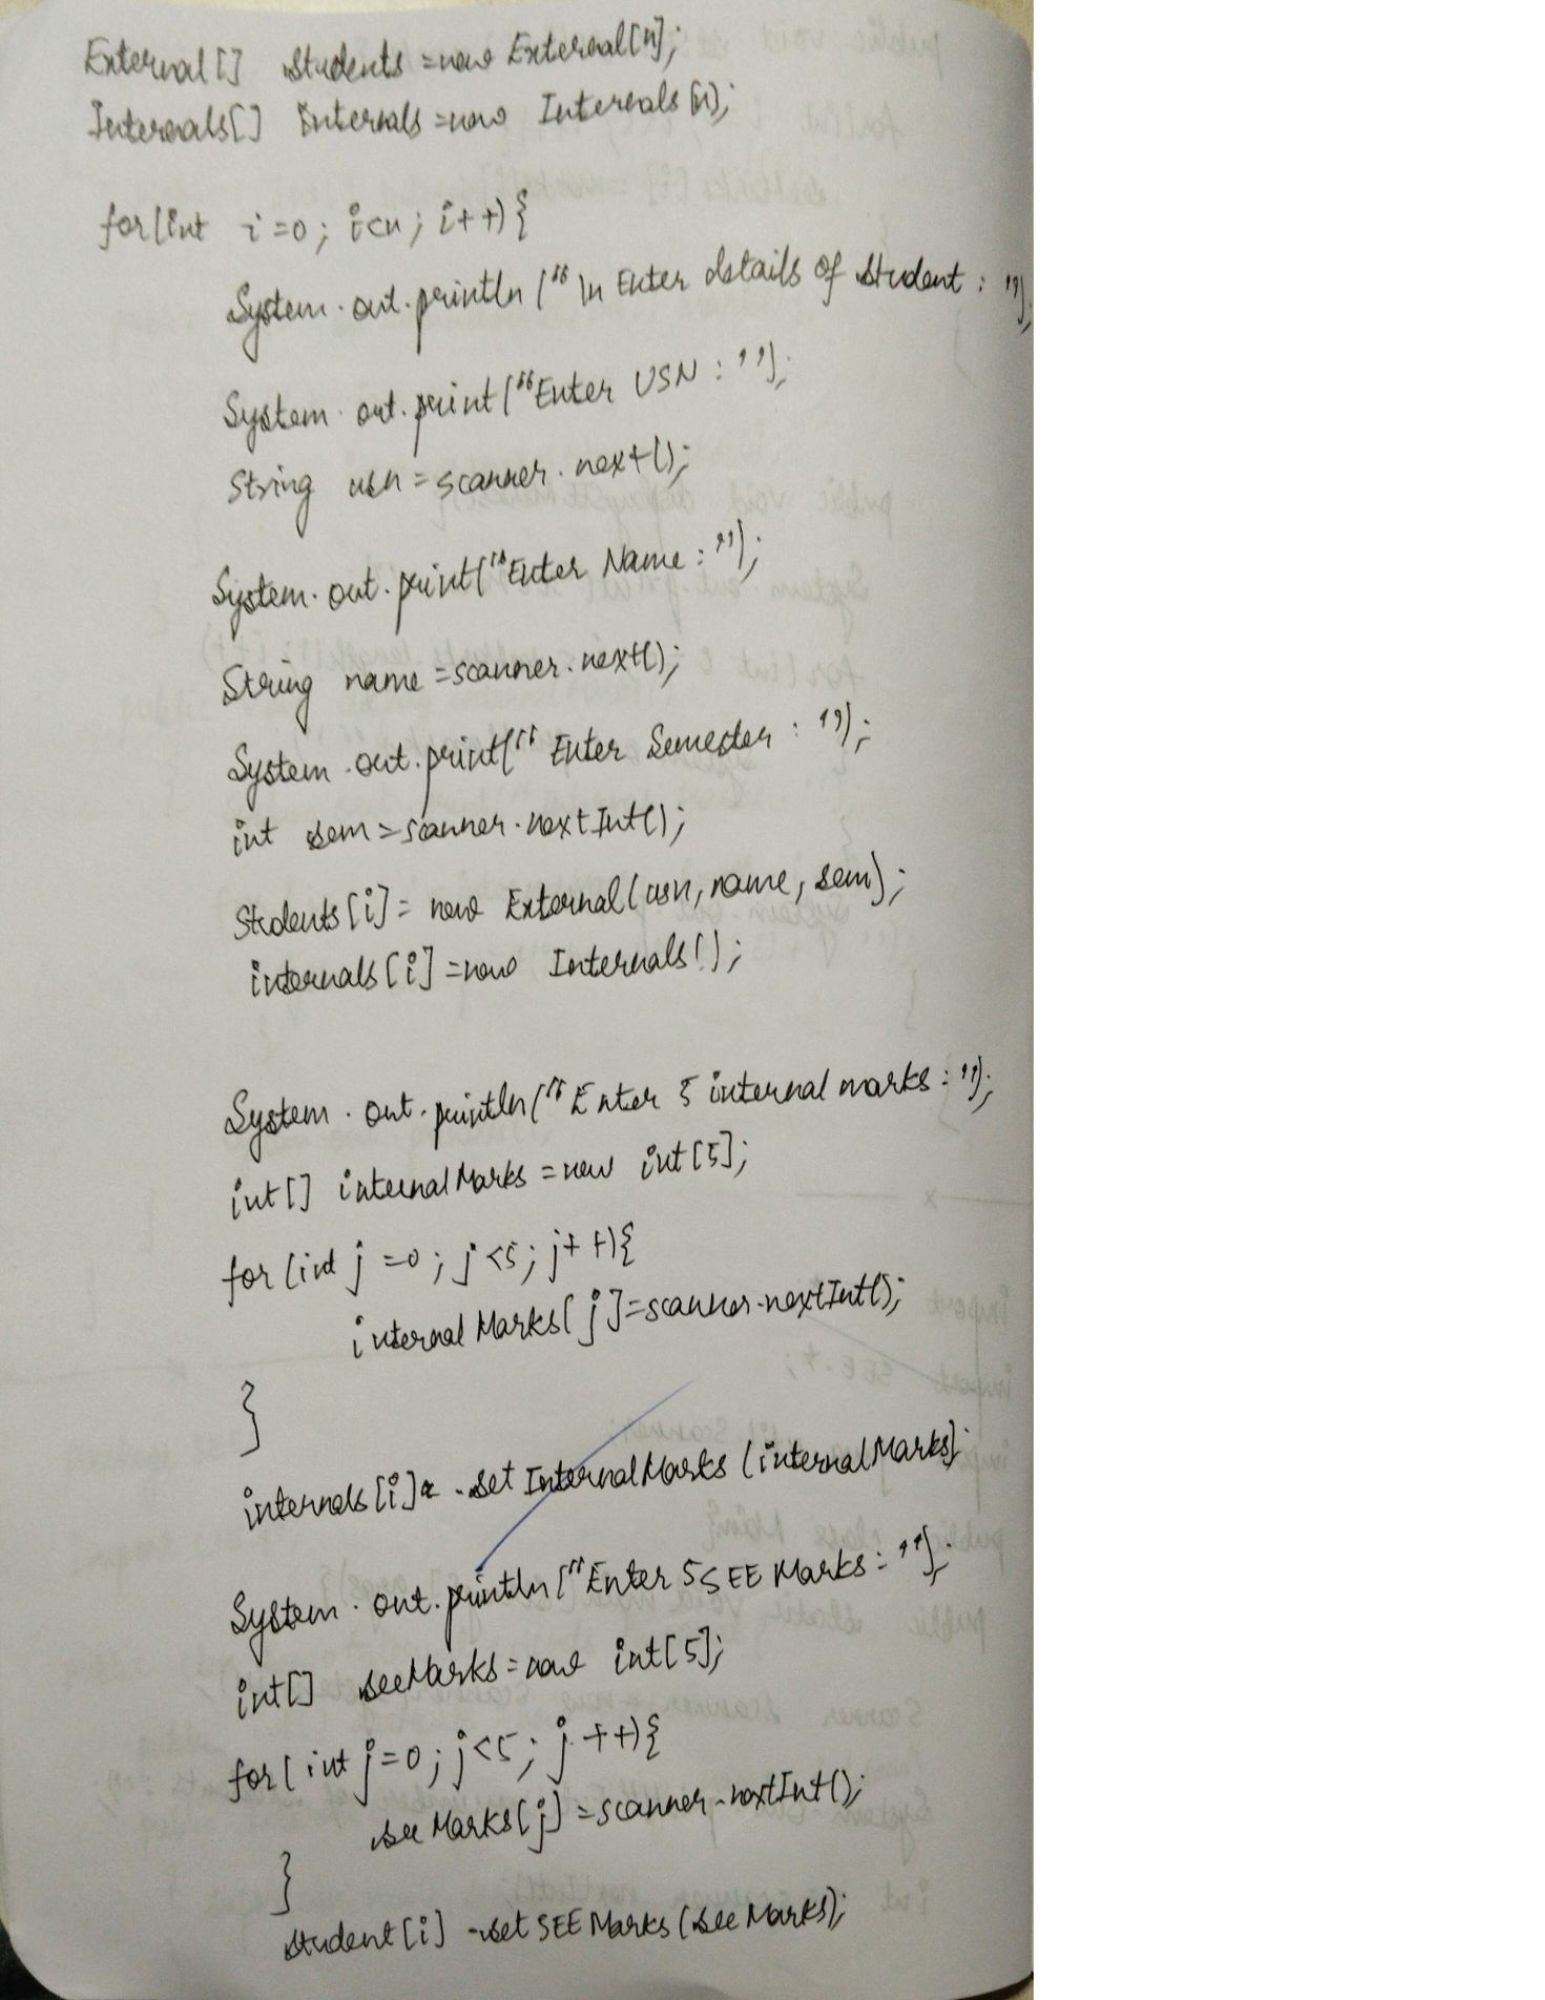 External[] students = new External[n];
Internals[] internals = new Internals[n];
for(int i=0; i<n; i++){
System.out.println("\n Enter details of student : ");
System.out.print("Enter USN : ");
String usn = scanner.next();
System.out.print("Enter Name : ");
String name = scanner.next();
System.out.print(" Enter Semester : ");
int sem = scanner.nextInt();
Students[i] = new External(usn, name, sem);
internals[i] = new Internals();
System.out.println("Enter 5 internal marks : ");
int[] internalMarks = new int[5];
for (int j =0; j <5; j++){
internalMarks[j] = scanner.nextInt();
}
internals[i] .set InternalMarks (internalMarks);
System.out.println("Enter 5 SEE Marks : ");
int[] seeMarks = new int[5];
for( int j=0; j<5; j++){
seeMarks[j] = scanner.nextInt();
}
student[i] .set SEE Marks (seeMarks);